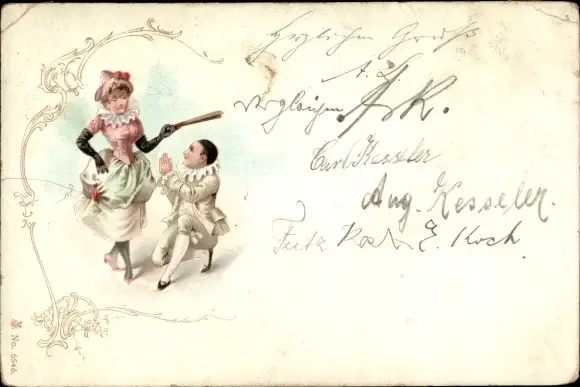 Herzlichen Gruß
A. L.
Vergleichen
K.
Carl Kesseler
Aug. Kesseler.
Fritz Koch E. Koch
No. 6546.